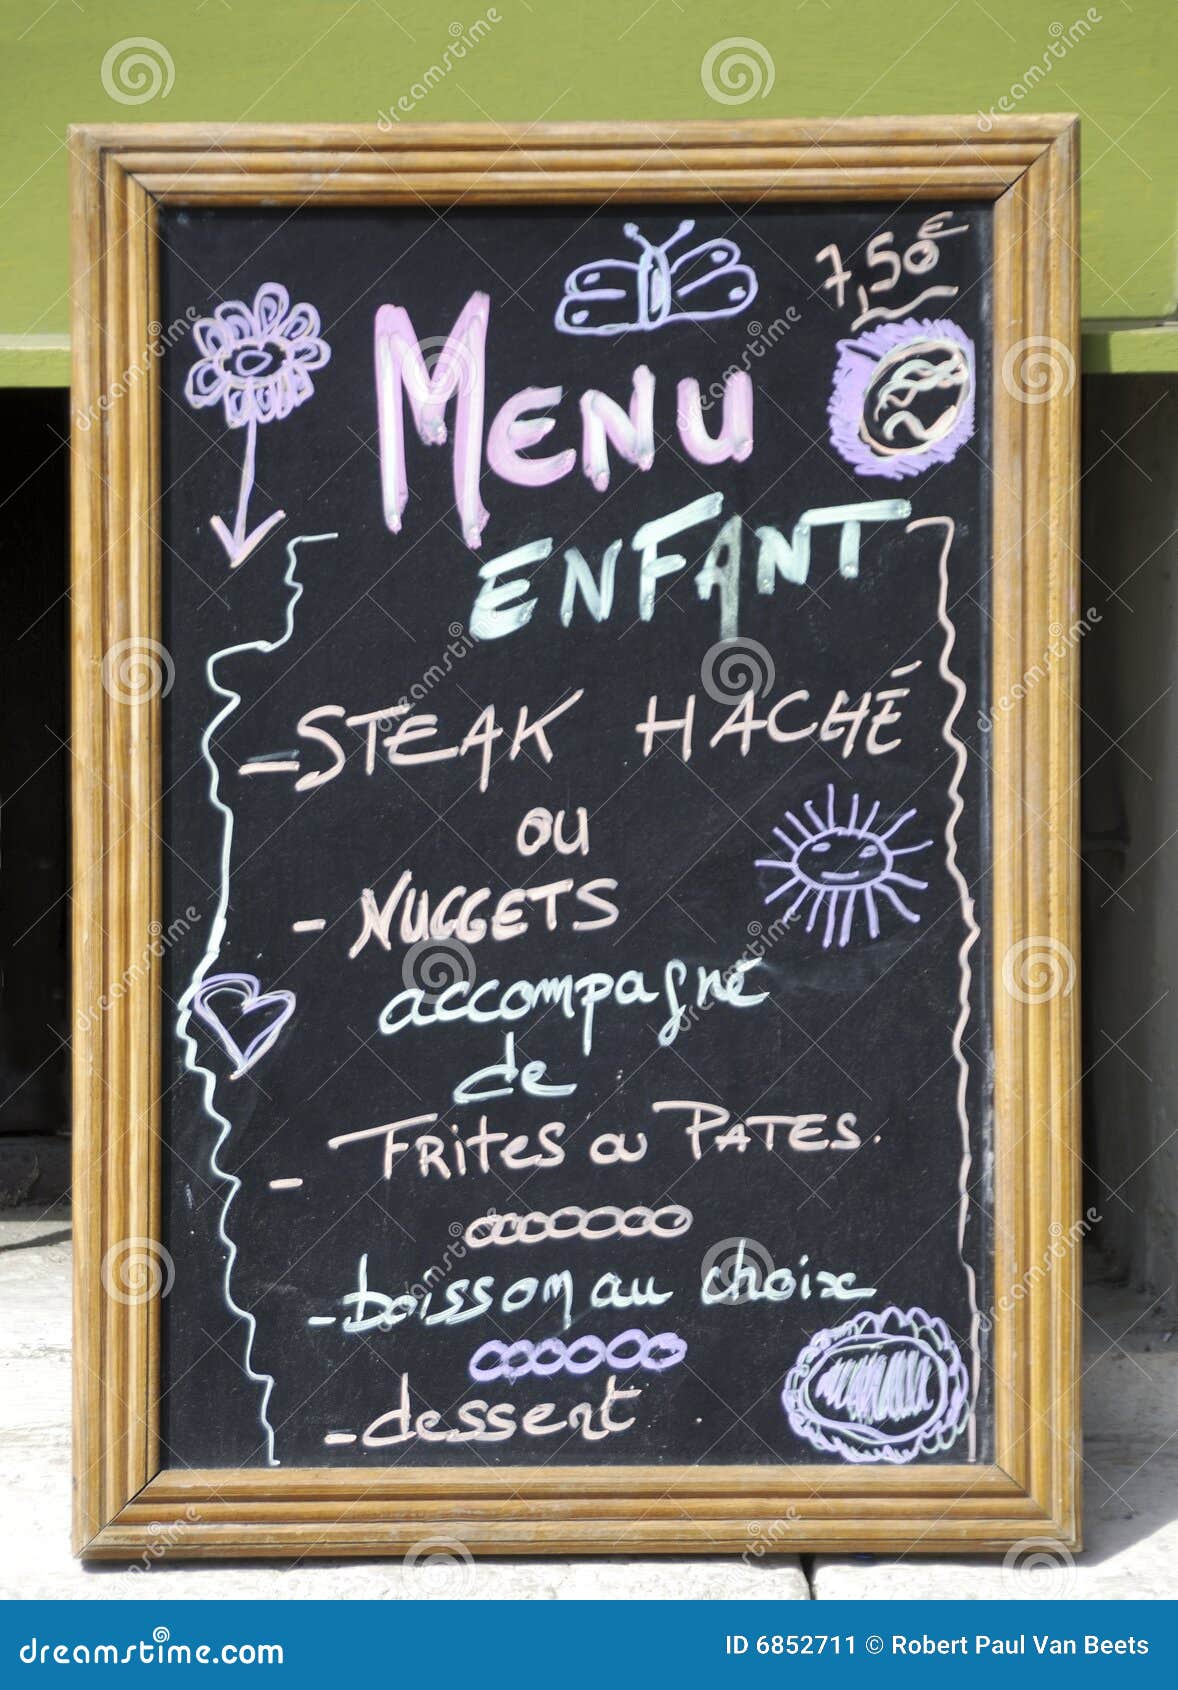 7,50€
MENU
ENFANT
- STEAK HACHÉ
ou
- NUGGETS
accompagné
de
- FRITES ou PATES.
- boisson au choix
- dessert.
dreamstime.com
ID 6852711 © Robert Paul Van Beets